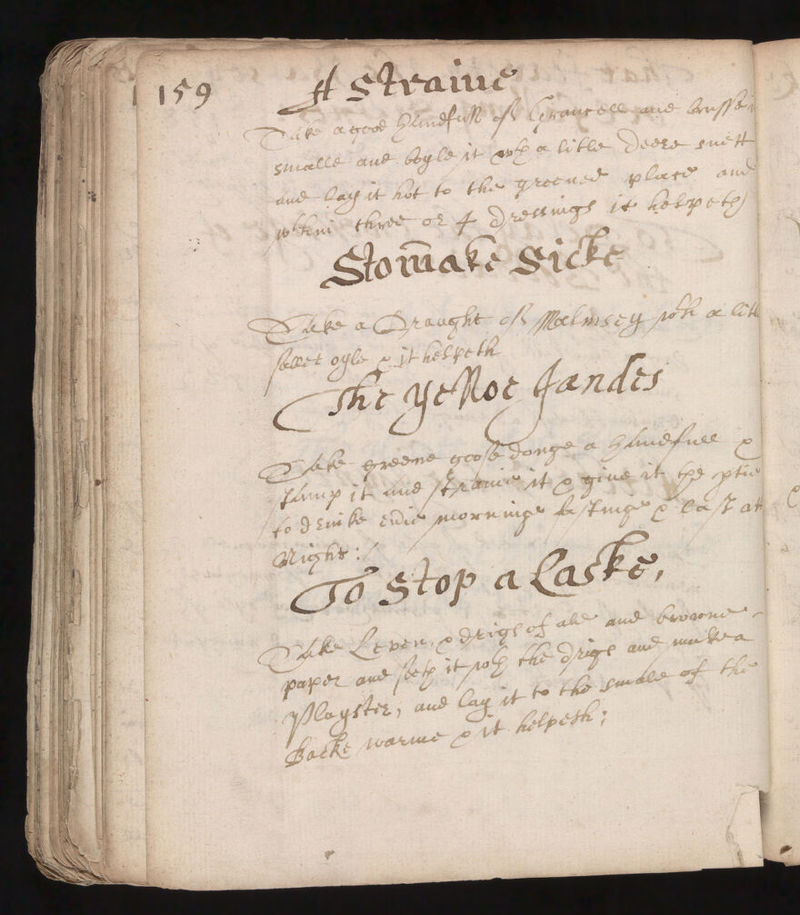 159
A Straine
Take a good handfull of Grouncell and brusse it
smalle and boyle it wth a litle deere suett
and lay it hot to the greeued place and
wthin three or 4 dressings it helpeth
Stom̄ake Sicke
Take a Draught of Malmsey wth a litl
sallet oyle & it helpeth
The Yelloe Jandes
Take greene goose donge a handfull &
stamp it and straine it & giue it the ptie
to drinke euie morninge fastinge & last at
Night:/
To Stop a Laske,
Take Leven, & drigs of ale and browne
paper and seeth it wth the drigs and make a
Playster, and lay it to the smale of the
Backe warme & it helpeth;